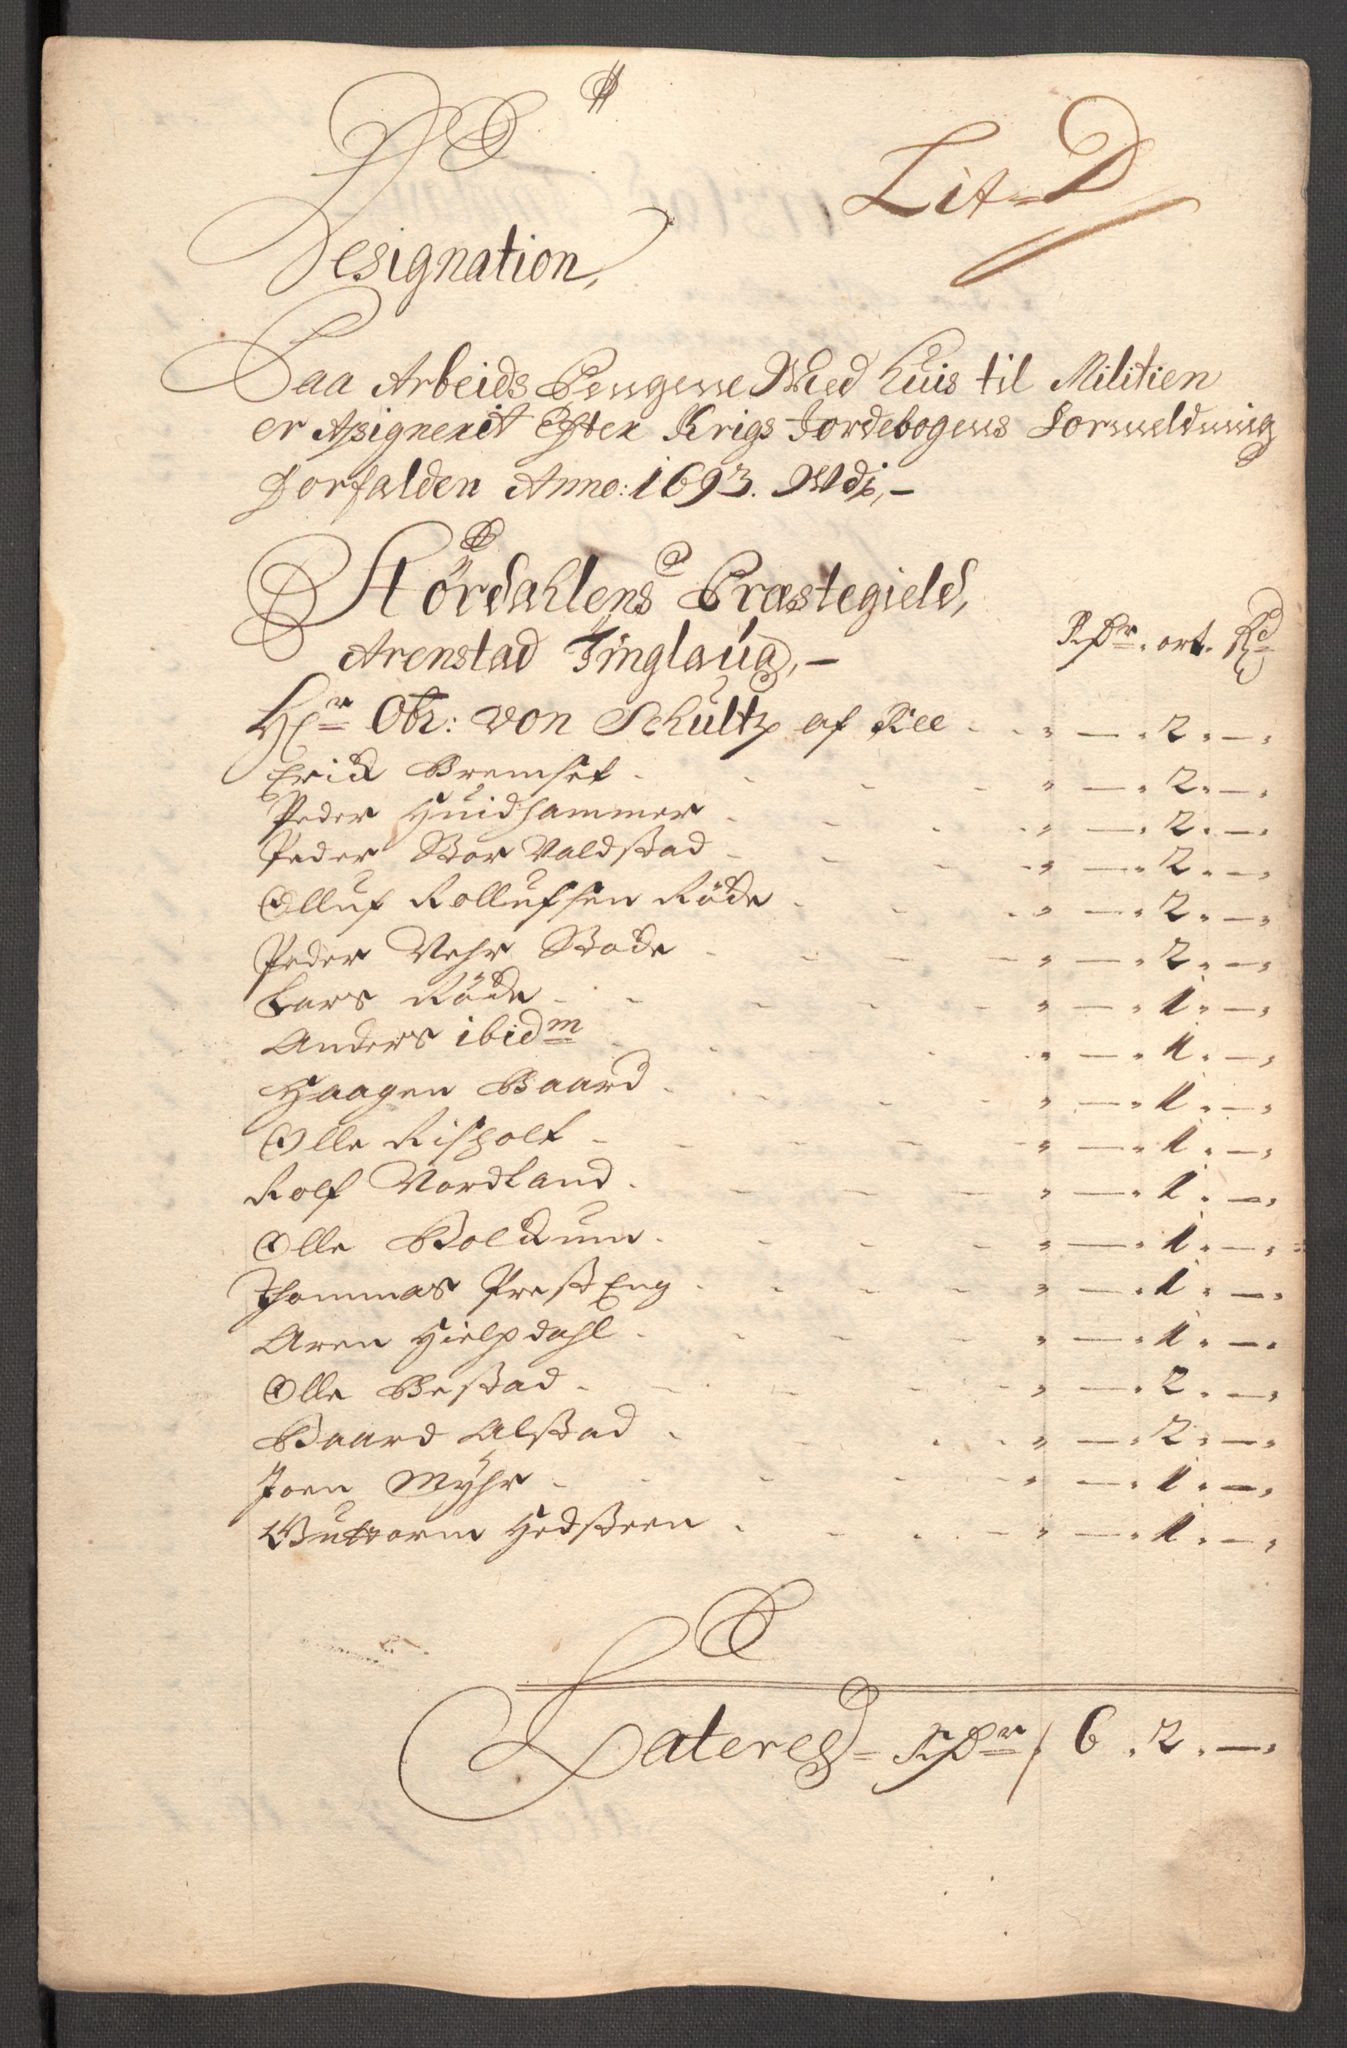 Lit D
Designation,
Paa Arbeids Pengene Med huis til Militien
er Assignerit Efter Krigs Jordebogens Formeldning
Forfalden Anno: 1693. Wdj,-
Størdahlens Præstegield,
Arenstad Tinglaug,- Rdr. ort. S
Hr Obr: von Schultz af Ree - 2 -
Erick Bremset - 2 -
Peder Huidhammer - 2 -
Peder Stor Valdstad - 2 -
Olluf Rollufsen Røde - 2 -
Peder Vehr Stode - 2 -
Lars Røde - 1 -
Anders ibidm - 1 -
Haagen Baard - 1 -
Olle Risholt - 1 -
Rolf Nordland - 1 -
Olle Bolkum - 1 -
Thommas PrestEng - 1 -
Aren Hielpdahl - 1 -
Olle Bestad - 2 -
Baard Alstad - 2 -
Joen Myhr - 1 -
Guttorm Hedsteen - 1 -
Lateres Rdr 6. 2. -